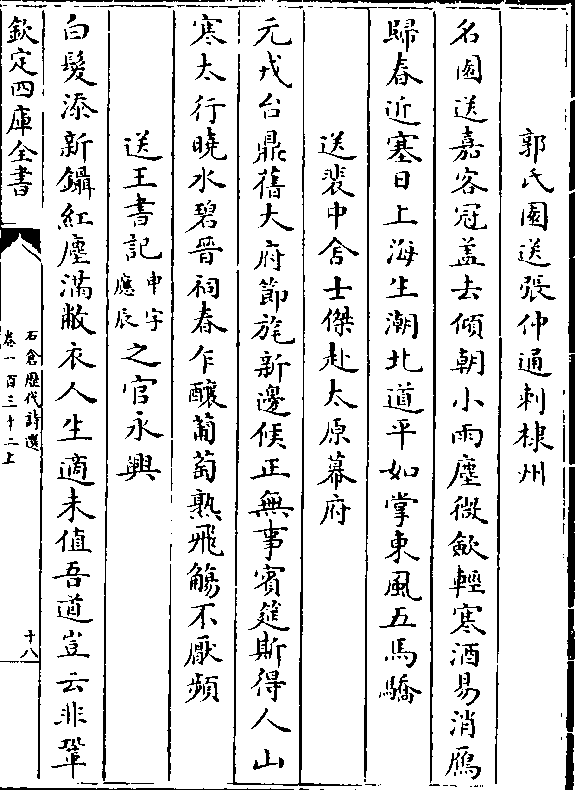 郭氏園送張仲通刺棣州
名園送嘉客冠盖去傾朝小雨塵微歛輕寒酒易消鴈
歸春近塞日上海生潮北道平如掌東風五馬驕
送裴中舍士傑赴太原幕府
元戎台鼎舊大府節旄新邊候正無事賓筵斯得人山
寒太行曉水碧晉祠春乍釀葡萄熟飛觴不厭頻
送王書記申字應辰之官永興
白髮添新鑷紅塵滿敝衣人生適未值吾道豈云非鞏
欽定四庫全書
石倉歷代詩選
卷一百三十二上
十八